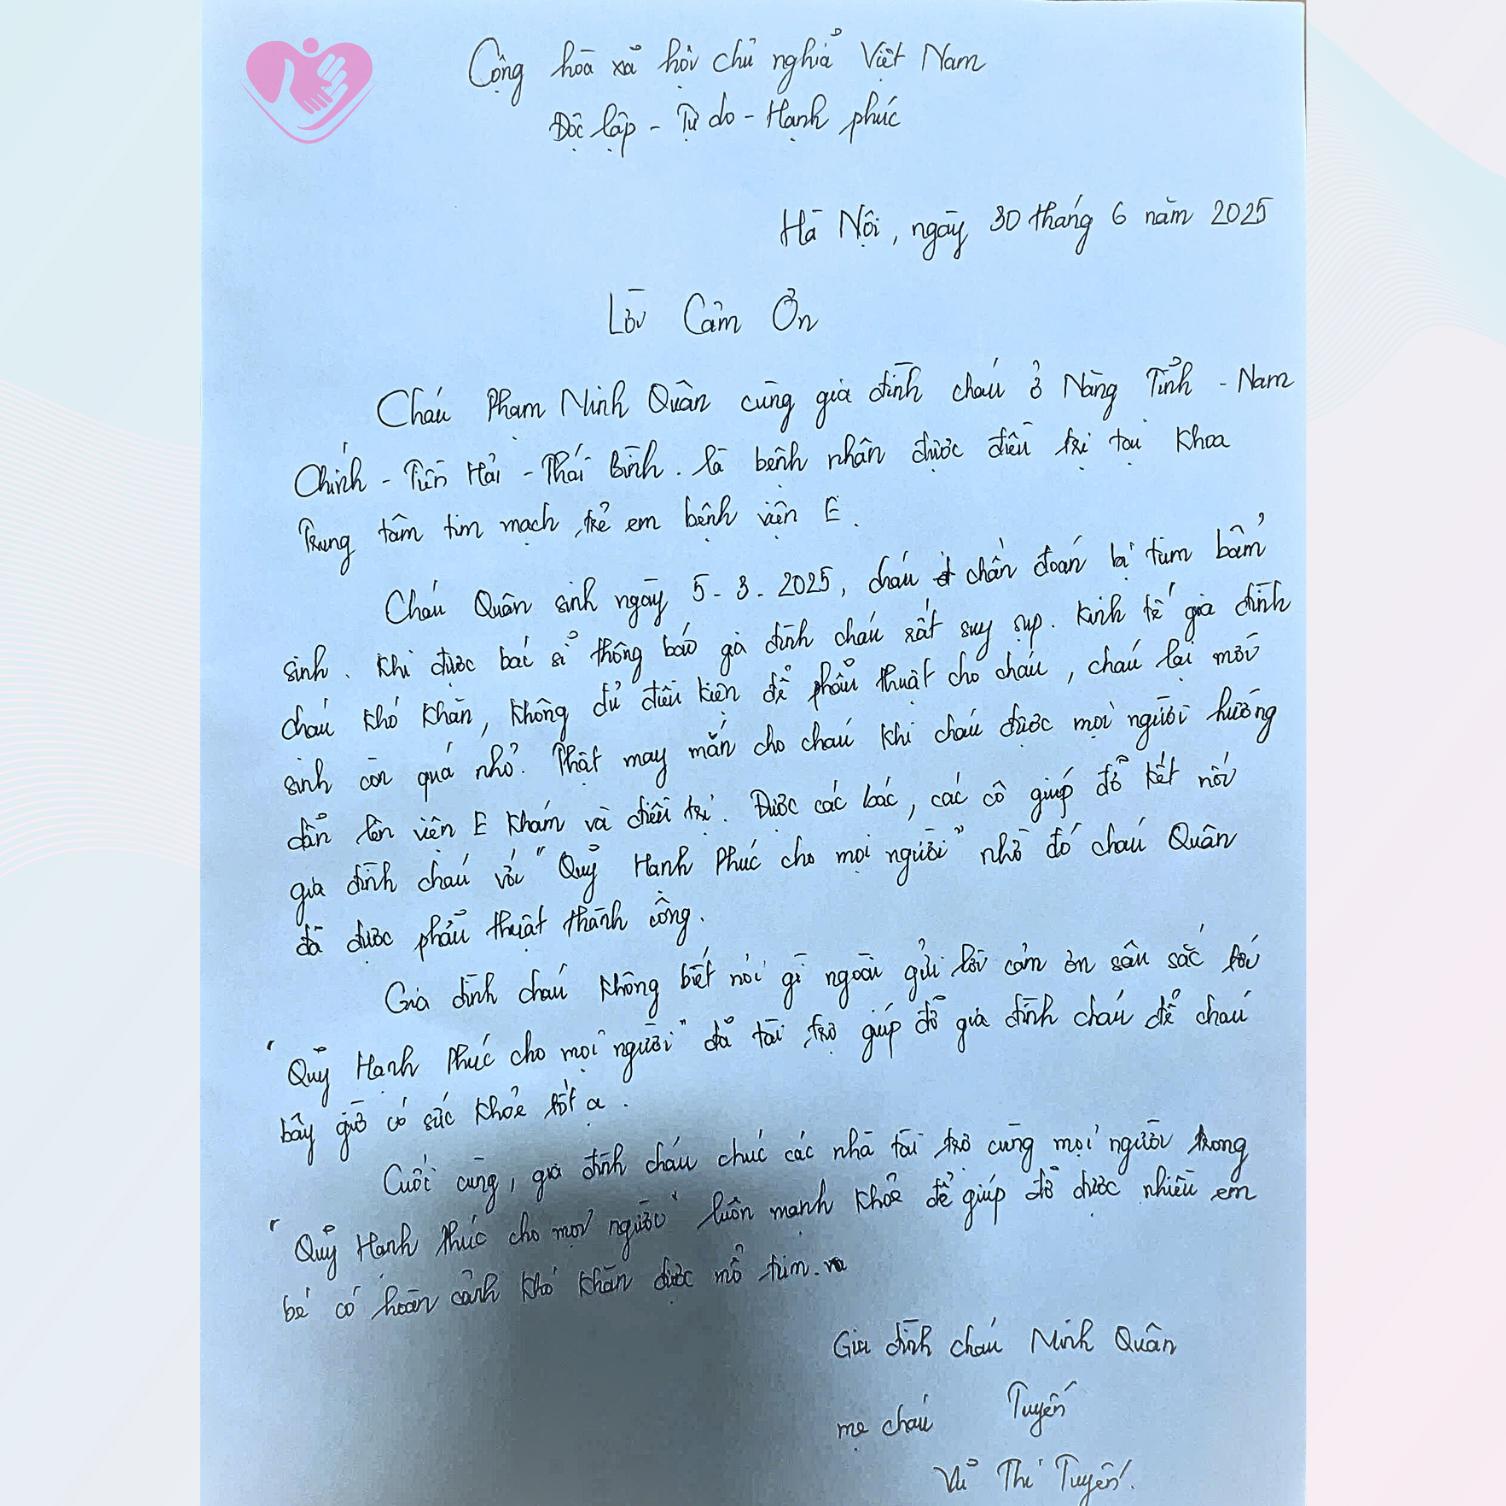 Cộng hòa xã hội chủ nghĩa Việt Nam
Độc lập - Tự do - Hạnh phúc
Hà Nội, ngày 30 tháng 6 năm 2025
Lời Cảm Ơn
Cháu Phạm Minh Quân cùng gia đình cháu ở Nàng Tỉnh - Nam
Chính - Tiền Hải - Thái Bình. là bệnh nhân được điều trị tại Khoa
Trung tâm tim mạch trẻ em bệnh viện E.
Cháu Quân sinh ngày 5-3-2025, cháu chẩn đoán bị tim bẩm
sinh. Khi được bác sĩ thông báo gia đình cháu rất suy sụp. Kinh tế gia đình
cháu khó khăn, không đủ điều kiện để phẫu thuật cho cháu, cháu lại mới
sinh còn quá nhỏ. Thật may mắn cho cháu khi cháu được mọi người hướng
dẫn lên viện E khám và điều trị. Được các bác, các cô giúp đỡ kết nối
gia đình cháu với "Quỹ Hạnh Phúc cho mọi người" nhờ đó cháu Quân
đã được phẫu thuật thành công.
Gia đình cháu không biết nói gì ngoài gửi lời cảm ơn sâu sắc tới
"Quỹ Hạnh Phúc cho mọi người" đã tài trợ giúp đỡ gia đình cháu để cháu
bây giờ có sức khỏe tốt ạ.
Cuối cùng, gia đình cháu chúc các nhà tài trợ cùng mọi người trong
"Quỹ Hạnh Phúc cho mọi người" luôn mạnh khỏe để giúp đỡ được nhiều em
bé có hoàn cảnh khó khăn được mổ tim.
Gia đình cháu Minh Quân
mẹ cháu Tuyến
Vũ Thị Tuyến.